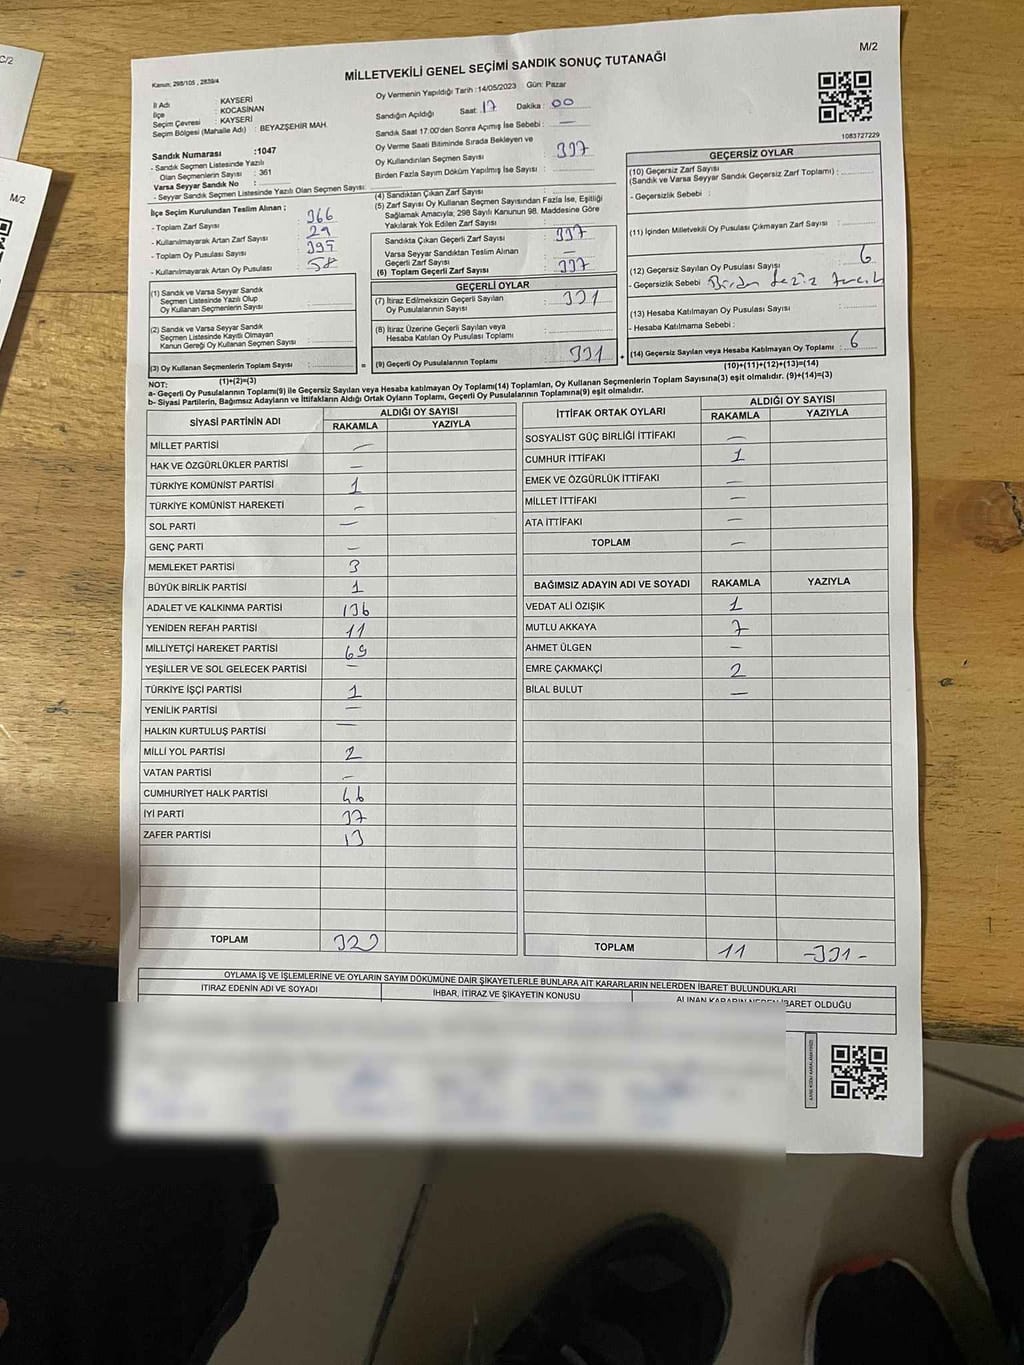 C/2
M/2
M/2
Kanun: 298/105 , 2839/4
MİLLETVEKİLİ GENEL SEÇİMİ SANDIK SONUÇ TUTANAĞI
1083727229
İl Adı : KAYSERİ
İlçe : KOCASİNAN
Seçim Çevresi : KAYSERİ
Seçim Bölgesi (Mahalle Adı) : BEYAZŞEHİR MAH.
Sandık Numarası :1047
- Sandık Seçmen Listesinde Yazılı
Olan Seçmenlerin Sayısı : 361
Varsa Seyyar Sandık No :
- Seyyar Sandık Seçmen Listesinde Yazılı Olan Seçmen Sayısı:
Oy Vermenin Yapıldığı Tarih :14/05/2023 Gün: Pazar
Sandığın Açıldığı Saat : 17 Dakika : 00
Sandık Saat 17:00'den Sonra Açımış İse Sebebi : —
Oy Verme Saati Bitiminde Sırada Bekleyen ve
Oy Kullandırılan Seçmen Sayısı : 337
Birden Fazla Sayım Döküm Yapılmış İse Sayısı :
İlçe Seçim Kurulundan Teslim Alınan ;
- Toplam Zarf Sayısı : 366
- Kullanılmayarak Artan Zarf Sayısı : 29
- Toplam Oy Pusulası Sayısı : 395
- Kullanılmayarak Artan Oy Pusulası : 58
(1) Sandık ve Varsa Seyyar Sandık
Seçmen Listesinde Yazılı Olup
Oy Kullanan Seçmenlerin Sayısı :
(2) Sandık ve Varsa Seyyar Sandık
Seçmen Listesinde Kayıtlı Olmayan
Kanun Gereği Oy Kullanan Seçmen Sayısı :
(3) Oy Kullanan Seçmenlerin Toplam Sayısı :
(1)+(2)=(3)
(4) Sandıktan Çıkan Zarf Sayısı :
(5) Zarf Sayısı Oy Kullanan Seçmen Sayısından Fazla İse, Eşitliği
Sağlamak Amacıyla; 298 Sayılı Kanunun 98. Maddesine Göre
Yakılarak Yok Edilen Zarf Sayısı :
Sandıkta Çıkan Geçerli Zarf Sayısı : 337
Varsa Seyyar Sandıktan Teslim Alınan
Geçerli Zarf Sayısı : —
(6) Toplam Geçerli Zarf Sayısı : 337
GEÇERLİ OYLAR
(7) İtiraz Edilmeksizin Geçerli Sayılan
Oy Pusulalarının Sayısı : 331
(8) İtiraz Üzerine Geçerli Sayılan veya
Hesaba Katılan Oy Pusulası Toplamı :
= (9) Geçerli Oy Pusulalarının Toplamı : 331 +
GEÇERSİZ OYLAR
(10) Geçersiz Zarf Sayısı
(Sandık ve Varsa Seyyar Sandık Geçersiz Zarf Toplamı) :
- Geçersizlik Sebebi :
(11) İçinden Milletvekili Oy Pusulası Çıkmayan Zarf Sayısı :
(12) Geçersiz Sayılan Oy Pusulası Sayısı : 6
- Geçersizlik Sebebi :
(13) Hesaba Katılmayan Oy Pusulası Sayısı :
- Hesaba Katılmama Sebebi :
(14) Geçersiz Sayılan veya Hesaba Katılmayan Oy Toplamı : 6
(10)+(11)+(12)+(13)=(14)
NOT:
a- Geçerli Oy Pusulalarının Toplamı(9) ile Geçersiz Sayılan veya Hesaba katılmayan Oy Toplamı(14) Toplamları, Oy Kullanan Seçmenlerin Toplam Sayısına(3) eşit olmalıdır. (9)+(14)=(3)
b- Siyasi Partilerin, Bağımsız Adayların ve İttifakların Aldığı Ortak Oyların Toplamı, Geçerli Oy Pusulalarının Toplamına(9) eşit olmalıdır.
SİYASİ PARTİNİN ADI ALDIĞI OY SAYISI
RAKAMLA YAZIYLA
MİLLET PARTİSİ —
HAK VE ÖZGÜRLÜKLER PARTİSİ —
TÜRKİYE KOMÜNİST PARTİSİ 1
TÜRKİYE KOMÜNİST HAREKETİ —
SOL PARTİ —
GENÇ PARTİ —
MEMLEKET PARTİSİ 3
BÜYÜK BİRLİK PARTİSİ 1
ADALET VE KALKINMA PARTİSİ 136
YENİDEN REFAH PARTİSİ 11
MİLLİYETÇİ HAREKET PARTİSİ 69
YEŞİLLER VE SOL GELECEK PARTİSİ —
TÜRKİYE İŞÇİ PARTİSİ 1
YENİLİK PARTİSİ —
HALKIN KURTULUŞ PARTİSİ —
MİLLİ YOL PARTİSİ 2
VATAN PARTİSİ —
CUMHURİYET HALK PARTİSİ 46
İYİ PARTİ 37
ZAFER PARTİSİ 13
TOPLAM 320
İTTİFAK ORTAK OYLARI ALDIĞI OY SAYISI
RAKAMLA YAZIYLA
SOSYALİST GÜÇ BİRLİĞİ İTTİFAKI —
CUMHUR İTTİFAKI 1
EMEK VE ÖZGÜRLÜK İTTİFAKI —
MİLLET İTTİFAKI —
ATA İTTİFAKI —
TOPLAM —
BAĞIMSIZ ADAYIN ADI VE SOYADI RAKAMLA YAZIYLA
VEDAT ALİ ÖZIŞIK 1
MUTLU AKKAYA 7
AHMET ÜLGEN —
EMRE ÇAKMAKÇİ 2
BİLAL BULUT —
TOPLAM 11 -331-
OYLAMA İŞ VE İŞLEMLERİNE VE OYLARIN SAYIM DÖKÜMÜNE DAİR ŞİKAYETLERLE BUNLARA AİT KARARLARIN NELERDEN İBARET BULUNDUKLARI
İTİRAZ EDENİN ADI VE SOYADI İHBAR, İTİRAZ VE ŞİKAYETİN KONUSU ALINAN KARARIN NEDEN İBARET OLDUĞU